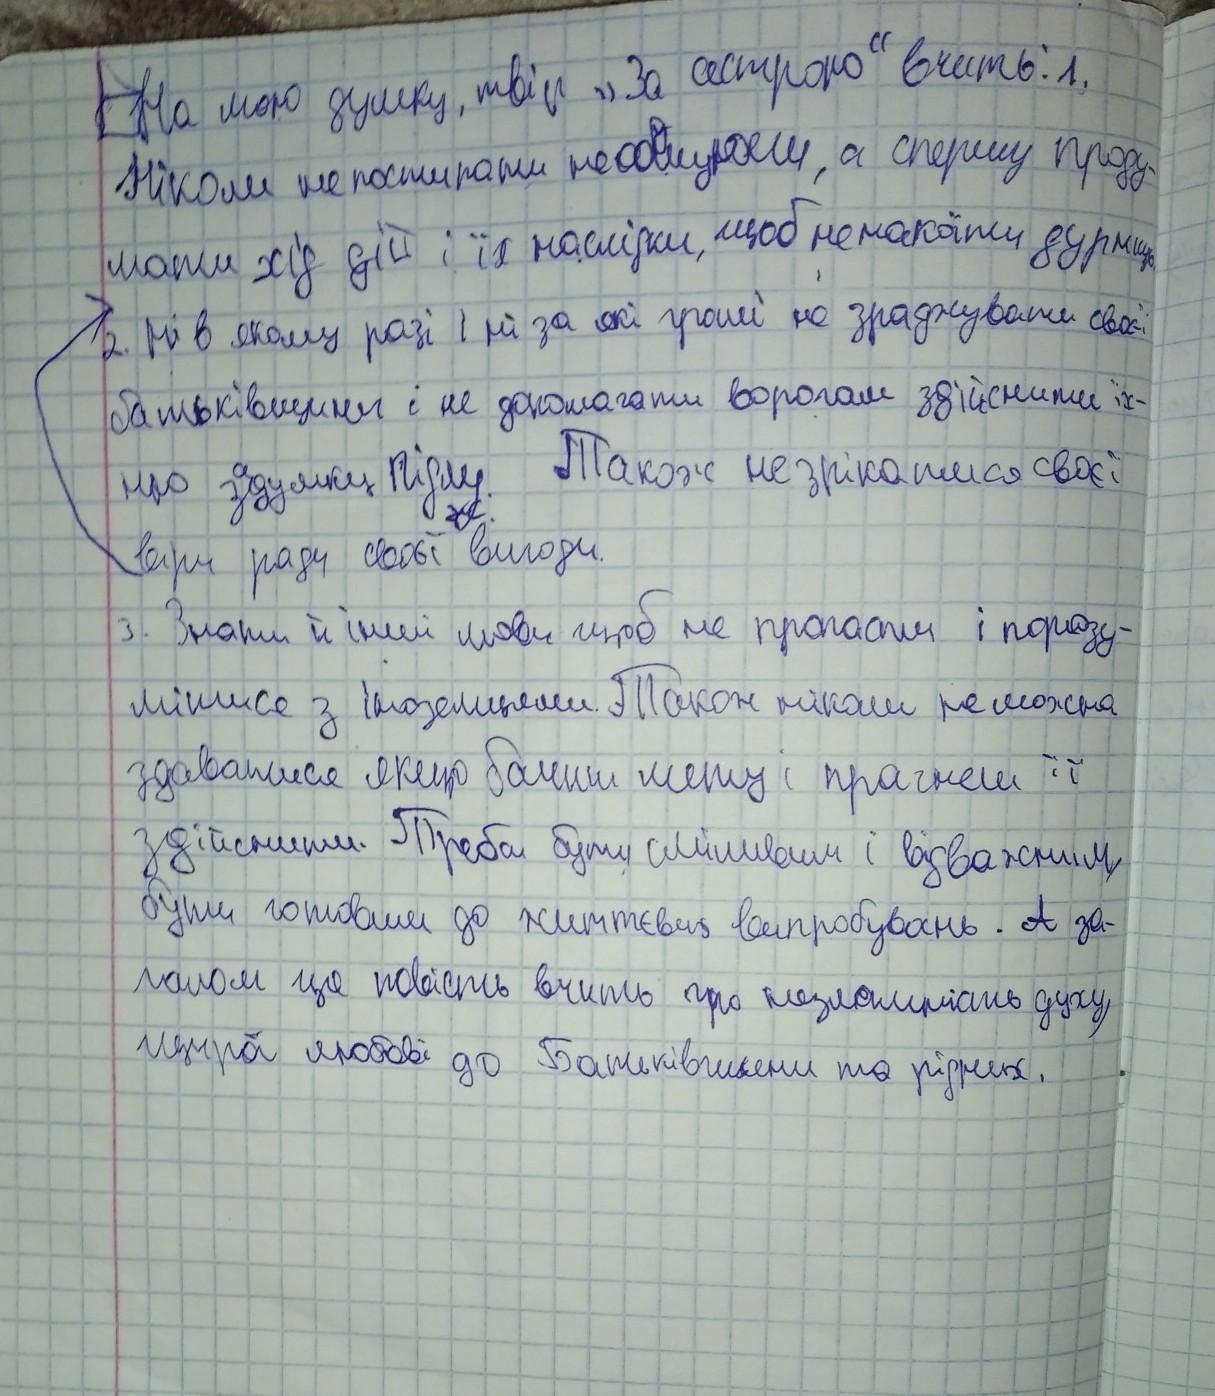 На мою думку, твір „За сестрою“ вчить: 1.
Ніколи не поступати необдумано, а спершу проду-
мати хід дій і їх наслідки, щоб не накоїти дурниць.
2. Ні в якому разі і ні за які гроші не зраджувати своєї
батьківщини і не допомагати ворогам здійснити їх-
ню задумку підлу. Також не зрікатися своєї
віри ради своєї вигоди.
3. Знати й інші мови щоб не пропасти і порозу-
мітися з іноземцями. Також ніколи не можна
здаватися якщо бачиш мету і прагнеш її
здійснити. Треба бути сміливим і відважним,
бути готовим до життєвих випробувань. А за-
галом ця повість вчить про незламність духу,
щирої любові до Батьківщини та рідних.